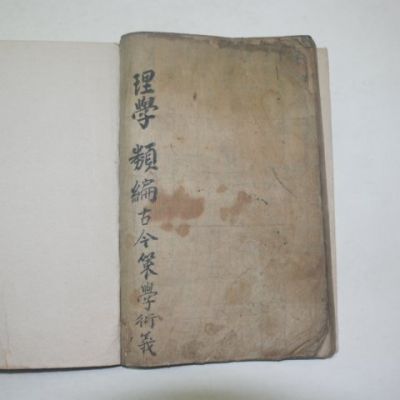 理學類編古今策學術義